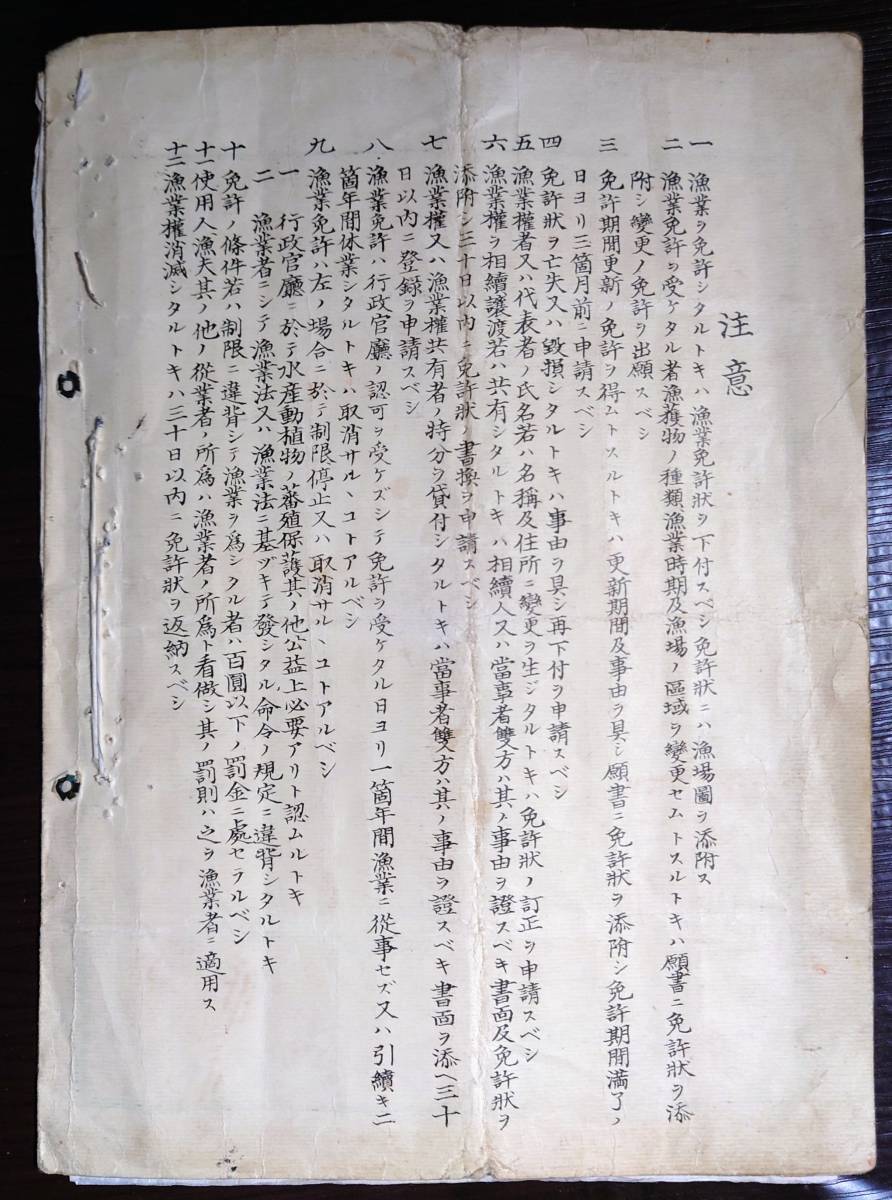 注意
一 漁業ヲ免許シタルトキハ漁業免許狀ヲ下付スベシ免許狀ニハ漁場圖ヲ添附ス
二 漁業免許ヲ受ケタル者漁獲物ノ種類漁業時期及漁場ノ區域ヲ變更セムトスルトキハ願書ニ免許狀ヲ添
附シ變更ノ免許ヲ出願スベシ
三 免許期間更新ノ免許ヲ得ムトスルトキハ更新期間及事由ヲ具シ願書ニ免許狀ヲ添附シ免許期間滿了ノ
日ヨリ三箇月前ニ申請スベシ
四 免許狀ヲ亡失又ハ毀損シタルトキハ事由ヲ具シ再下付ヲ申請スベシ
五 漁業權者又ハ代表者ノ氏名若ハ名稱及住所ニ變更ヲ生ジタルトキハ免許狀ノ訂正ヲ申請スベシ
六 漁業權ヲ相續讓渡若ハ共有シタルトキハ相續人又ハ當事者雙方ハ其ノ事由ヲ證スベキ書面及免許狀ヲ
添附シ三十日以內ニ免許狀ノ書換ヲ申請スベシ
七 漁業權又ハ漁業權共有者ノ持分ヲ貸付シタルトキハ當事者雙方ハ其ノ事由ヲ證スベキ書面ヲ添ヘ三十
日以內ニ登録ヲ申請スベシ
八 漁業免許ハ行政官廳ノ認可ヲ受ケズシテ免許ヲ受ケタル日ヨリ一箇年間漁業ニ從事セズ又ハ引續キ二
箇年間休業シタルトキハ取消サルヽコトアルベシ
九 漁業免許ハ左ノ場合ニ於テ制限停止又ハ取消サルヽコトアルベシ
一 行政官廳ニ於テ水産動植物ノ蕃殖保護其ノ他公益上必要アリト認ムルトキ
二 漁業者ニシテ漁業法又ハ漁業法ニ基ヅキテ發シタル命令ノ規定ニ違背シタルトキ
十 免許ノ條件若ハ制限ニ違背シテ漁業ヲ爲シタル者ハ百圓以下ノ罰金ニ處セラルベシ
十一 使用人漁夫其ノ他ノ從業者ノ所爲ハ漁業者ノ所爲ト看做シ其ノ罰則ハ之ヲ漁業者ニ適用ス
十二 漁業權消滅シタルトキハ三十日以內ニ免許狀ヲ返納スベシ